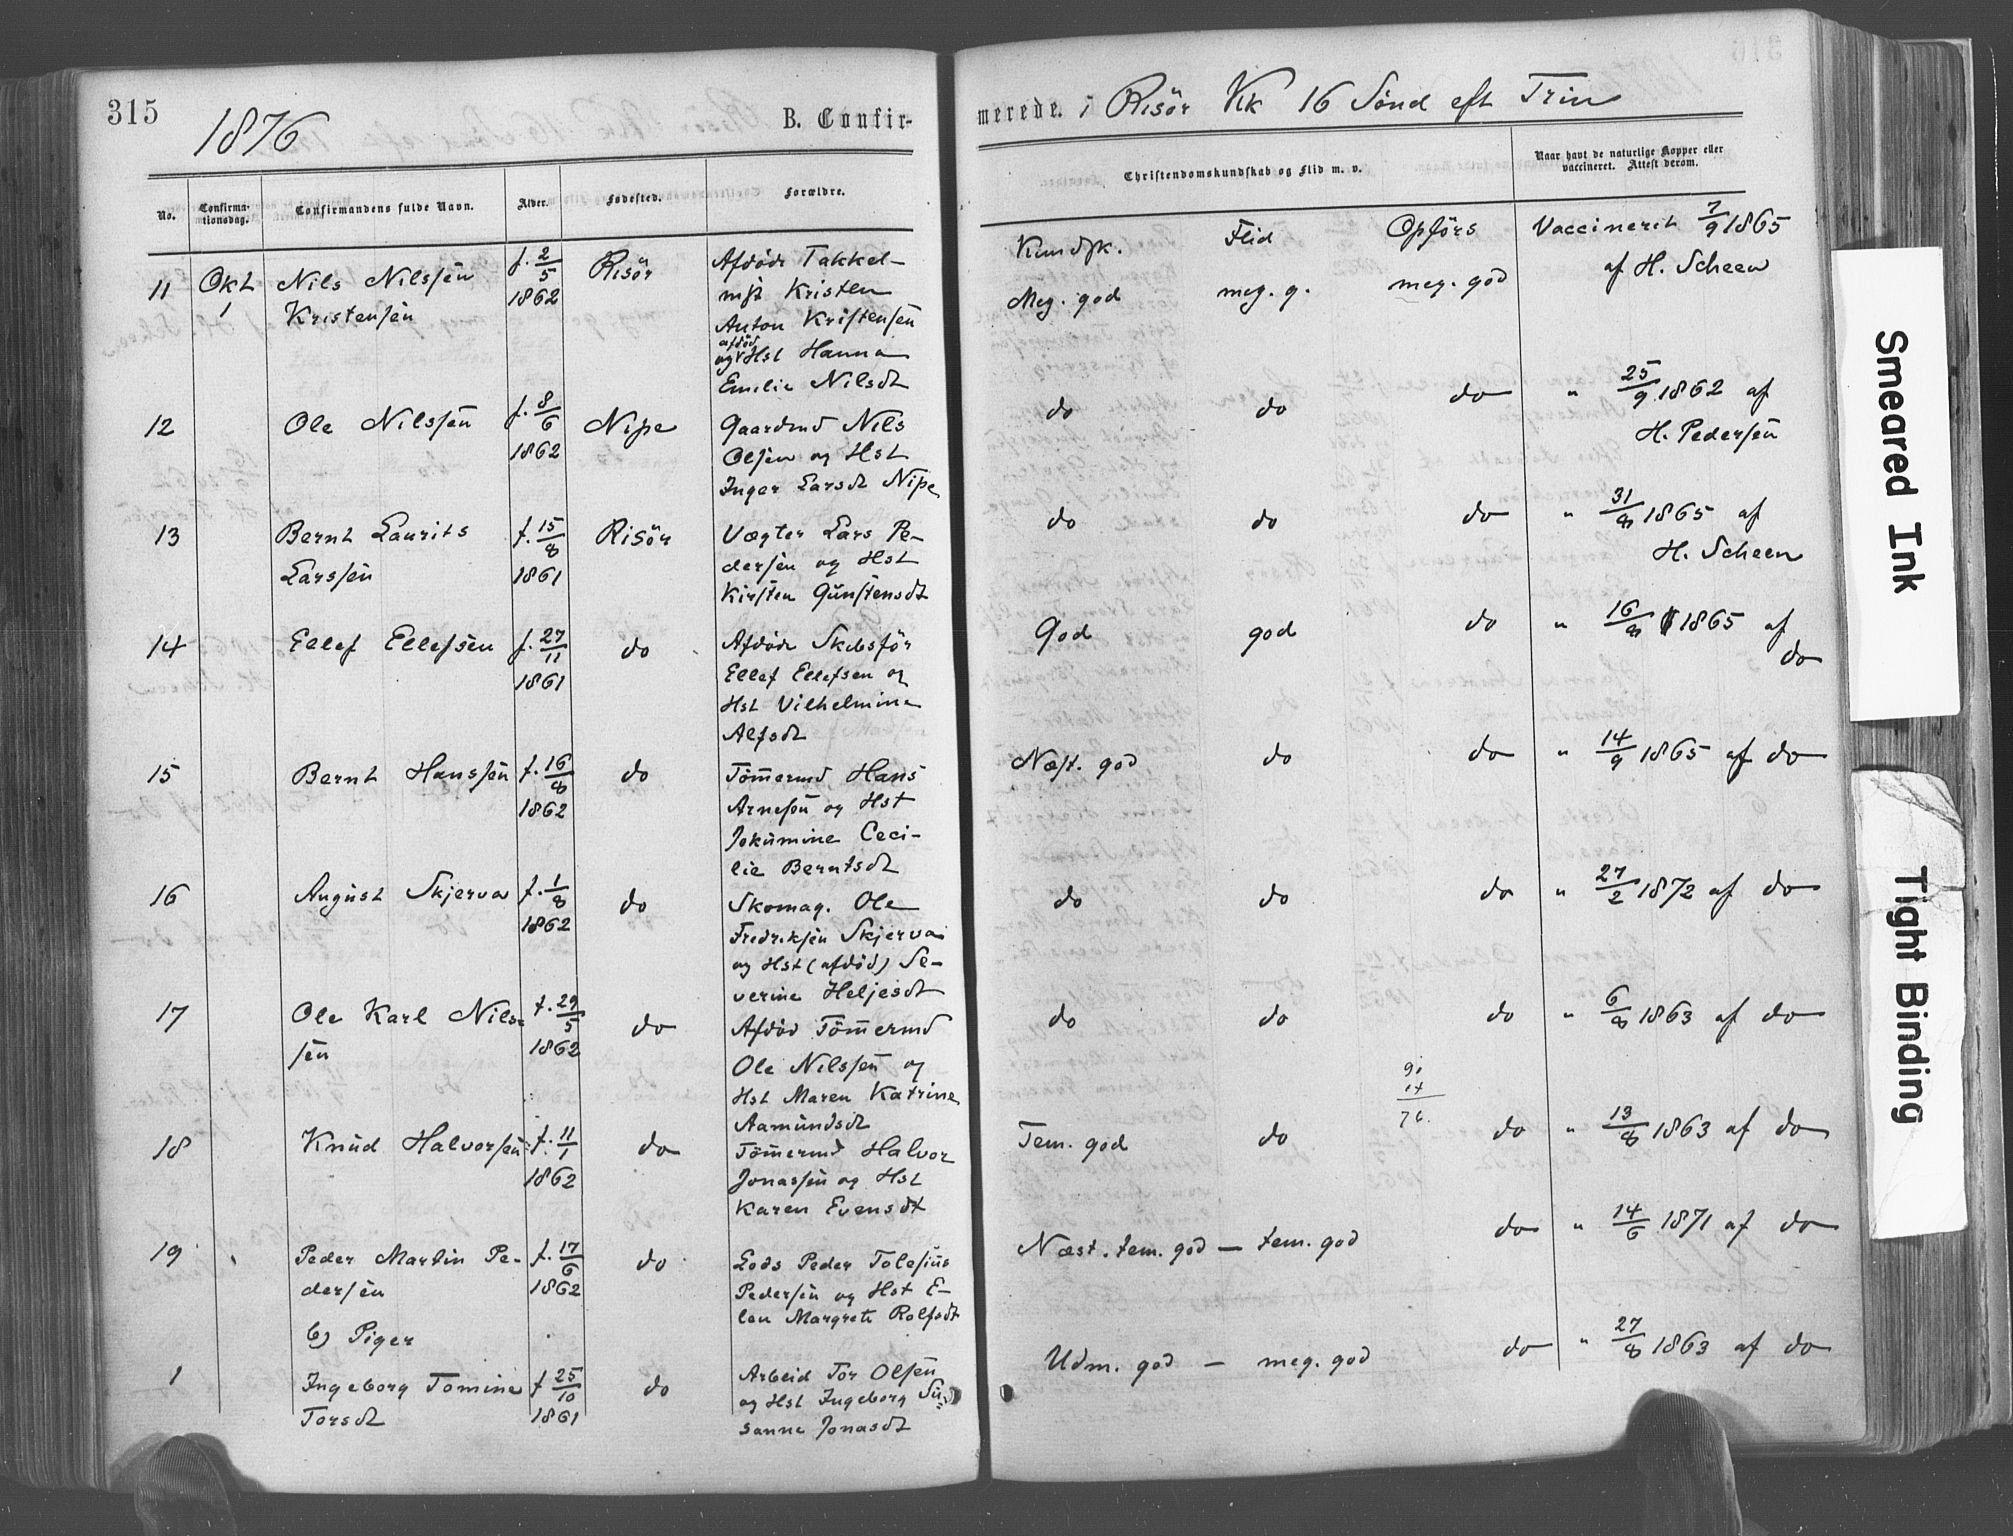 315
1876
B. Confir-
merede. i Risör Kk 16 Sønd eft Trin
No.
Confirma-
tionsdag.
Confirmandens fulde Navn.
Alder.
Fødested.
Forældre.
Christendomskundskab og Flid m. v.
Naar havt de naturlige Kopper eller
vaccineret. Attest derom.
Kundsk. Flid Opførs Vaccinerit 7/9 1865
11 Okt Nils Nilssen f. 2/5 Risör Afdøde Takkel-
1 Kristensen 1862
mst Kristen
Anton Kristensen
afdöd
og Hst Hanna
Emilie Nilsdt
Meg. god meg. g. meg. god af H. Scheen
12 Ole Nilssen f. 8/6 Nipe Gaardmd Nils
1862 Olsen og Hst
Inger Larsdt Nipe
do do do " 25/9 1862 af
H. Pedersen
13 Bernt Laurits f. 15/8 Risör Vægter Lars Pe-
Larssen 1861 dersen og Hst
Kirsten Gunstensdt
do do do " 31/8 1865 af
H. Scheen
14 Ellef Ellefsen f. 27/11 do Afdøde Skbsfør
1861 Ellef Ellefsen og
Hst Vilhelmine
Alfsdt
God god do " 16/8 1865 af
do
15 Bernt Hanssen f. 16/8 do Tömermd Hans
1862 Arnesen og Hst
Jokumine Ceci-
lie Berntsdt
Næst. god do do " 14/9 1865 af do
16 August Skjerva f. 1/8 do Skomag. Ole
1862 Fredriksen Skjerva
og Hst (afdöd) Se-
verine Heljesdt
do do do " 27/2 1872 af do
17 Ole Karl Nils- f. 29/5 do Afdöd Tömermd
sen 1862 Ole Nilssen og
Hst Maren Katrine
Aamundsdt
do do do " 6/8 1863 af do
18 Knud Halvorsen f. 11/1 do Tömermd Halvor
1862 Jonassen og Hst
Karen Evensdt
Tem. god do do " 13/8 1863 af do
19 Peder Martin Pe- f. 17/6 do Lods Peder
dersen 1862 Pedersen og Hst E-
len Margrete Rolfsdt
Næst. tem. god — tem. god do " 14/6 1871 af do
b) Piger
1 Ingeborg Tomine f 25/10 do Arbeid Tor Olsen
Torsdt 1861 og Hst Ingeborg Su-
sanne Jonasdt
Udm. god — meg. god do " 27/8 1863 af do
Smeared Ink
Tight Binding